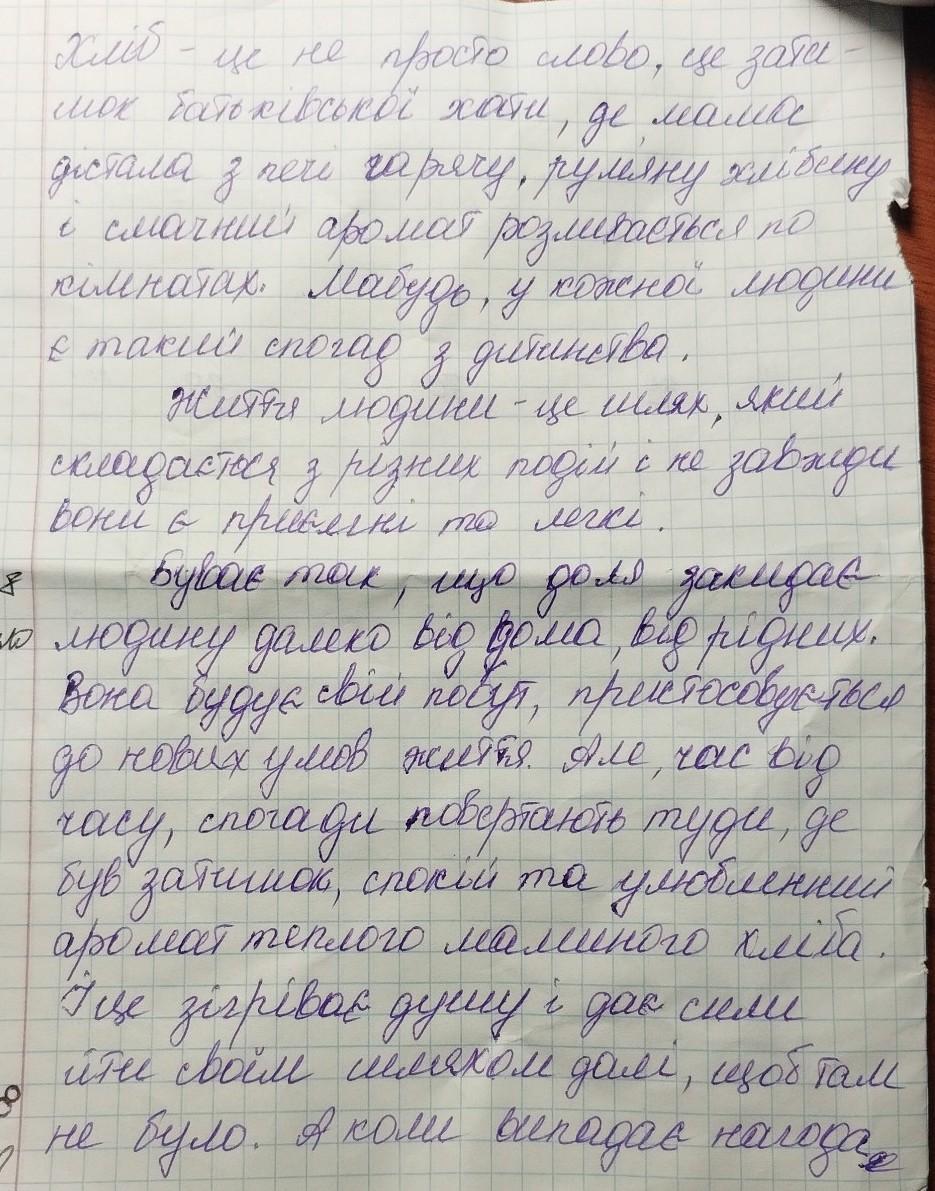 Хліб - це не просто слово, це зати-
шок батьківської хати, де мама
дістала з печі гарячу, рум'яну хлібину
і смачний аромат розливається по
кімнатах. Мабудь, у кожної людини
є такий спогад з дитинства.
Життя людини - це шлях, який
складається з різних подій і не завжди
вони є приємні та легкі.
Буває так, що доля закидає
людину далеко від дома, від рідних.
Вона будує свій побут, пристосовується
до нових умов життя. Але, час від
часу, спогади повертають туди, де
був затишок, спокій та улюбленний
аромат теплого маминого хліба.
І це зігріває душу і дає сили
йти своїм шляхом далі, щоб там
не було. А коли випадає нагода